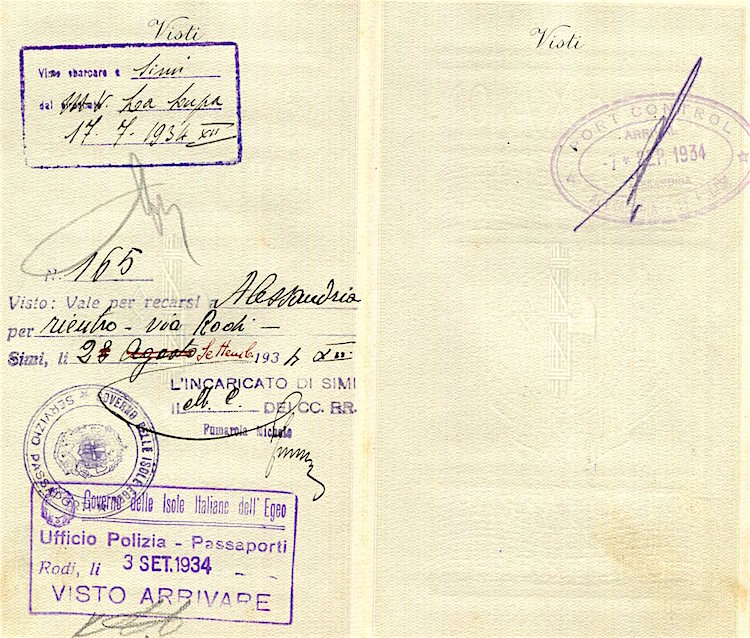 Visti
Visto sbarcare a Simi
dal La Lupa
17.7.1934 XII
N. 165
Visto: Vale per recarsi a Alessandria
per rientro - via Rodi -
Simi, li 2 Agosto Settemb. 1934 XII
L'INCARICATO DI SIMI
IL DEI CC. RR.
Fumarola Michele
GOVERNO DELLE ISOLE EGEO
SERVIZIO PASSAPORTI
Governo delle Isole Italiane dell' Egeo
Ufficio Polizia - Passaporti
Rodi, li 3 SET. 1934
VISTO ARRIVARE
Visti
PORT CONTROL
ARRIVAL
-7 SEP. 1934
ALEXANDRIA